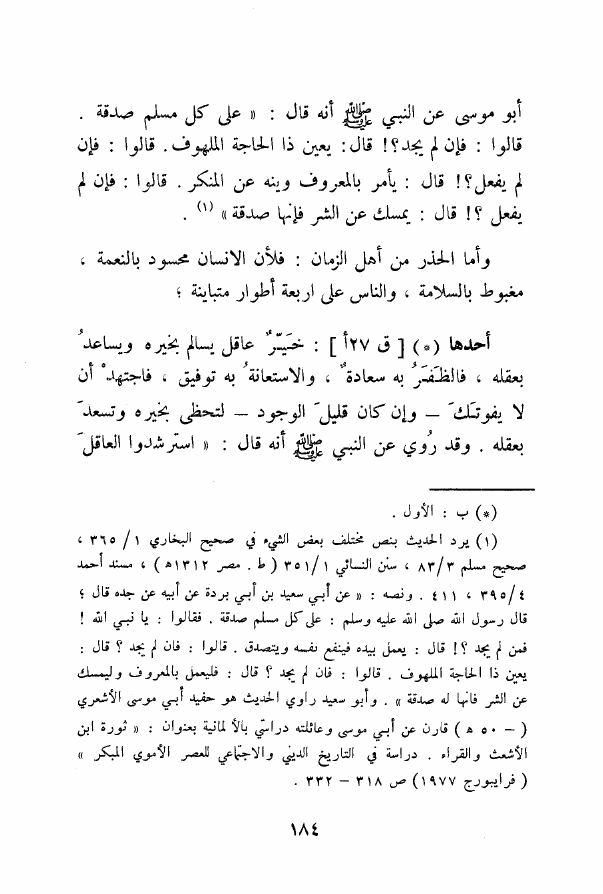 أبو موسى عن النبي ﷺ أنه قال : « على كل مسلم صدقة .
قالوا : فإن لم يجد؟! قال: يعين ذا الحاجة الملهوف. قالوا : فإن
لم يفعل؟! قال : يأمر بالمعروف وينه عن المنكر. قالوا : فإن لم
يفعل ؟! قال : يمسك عن الشر فإنها صدقة » (١) .
وأما الحذر من أهل الزمان : فلأن الانسان محسود بالنعمة ،
مغبوط بالسلامة ، والناس على اربعة أطوار متباينة ؛
أحدها (*) [ ق ٢٧أ ] : خَيِّرٌ عاقل يسالم بخيره ويساعدُ
بعقله ، فالظَفَرُ به سعادةٌ ، والاستعانةُ به توفيق ، فاجتهدْ أن
لا يفوتَكَ – وإن كان قليلَ الوجود – لتحظى بخيره وتسعدَ
بعقله . وقد رُوي عن النبي ﷺ أنه قال : « استرشدوا العاقلَ
(*) ب : الأول .
(١) يرد الحديث بنص مختلف بعض الشيء في صحيح البخاري ١/ ٣٦٥ ،
صحيح مسلم ٨٣/٣ ، سنن النسائي ٣٥١/١ ( ط . مصر ١٣١٢ﻫ ) ، مسند أحمد
٣٩٥/٤ ، ٤١١ . ونصه : « عن أبي سعيد بن أبي بردة عن أبيه عن جده قال ؛
قال رسول الله صلى الله عليه وسلم : على كل مسلم صدقة . فقالوا : يا نبي الله !
فمن لم يجد ؟! قال : يعمل بيده فينفع نفسه ويتصدق . قالوا : فان لم يجد ؟ قال :
يعين ذا الحاجة الملهوف . قالوا : فان لم يجد ؟ قال : فليعمل بالمعروف وليمسك
عن الشر فانها له صدقة » . وأبو سعيد راوي الحديث هو حفيد أبي موسى الأشعري
( – ٥٠ ﻫ ) قارن عن أبي موسى وعائلته دراستي بالألمانية بعنوان : « ثورة ابن
الأشعث والقراء . دراسة في التاريخ الديني والاجتماعي للعصر الأموي المبكر »
( فرايبورج ١٩٧٧) ص ٣١٨ – ٣٣٢ .
١٨٤